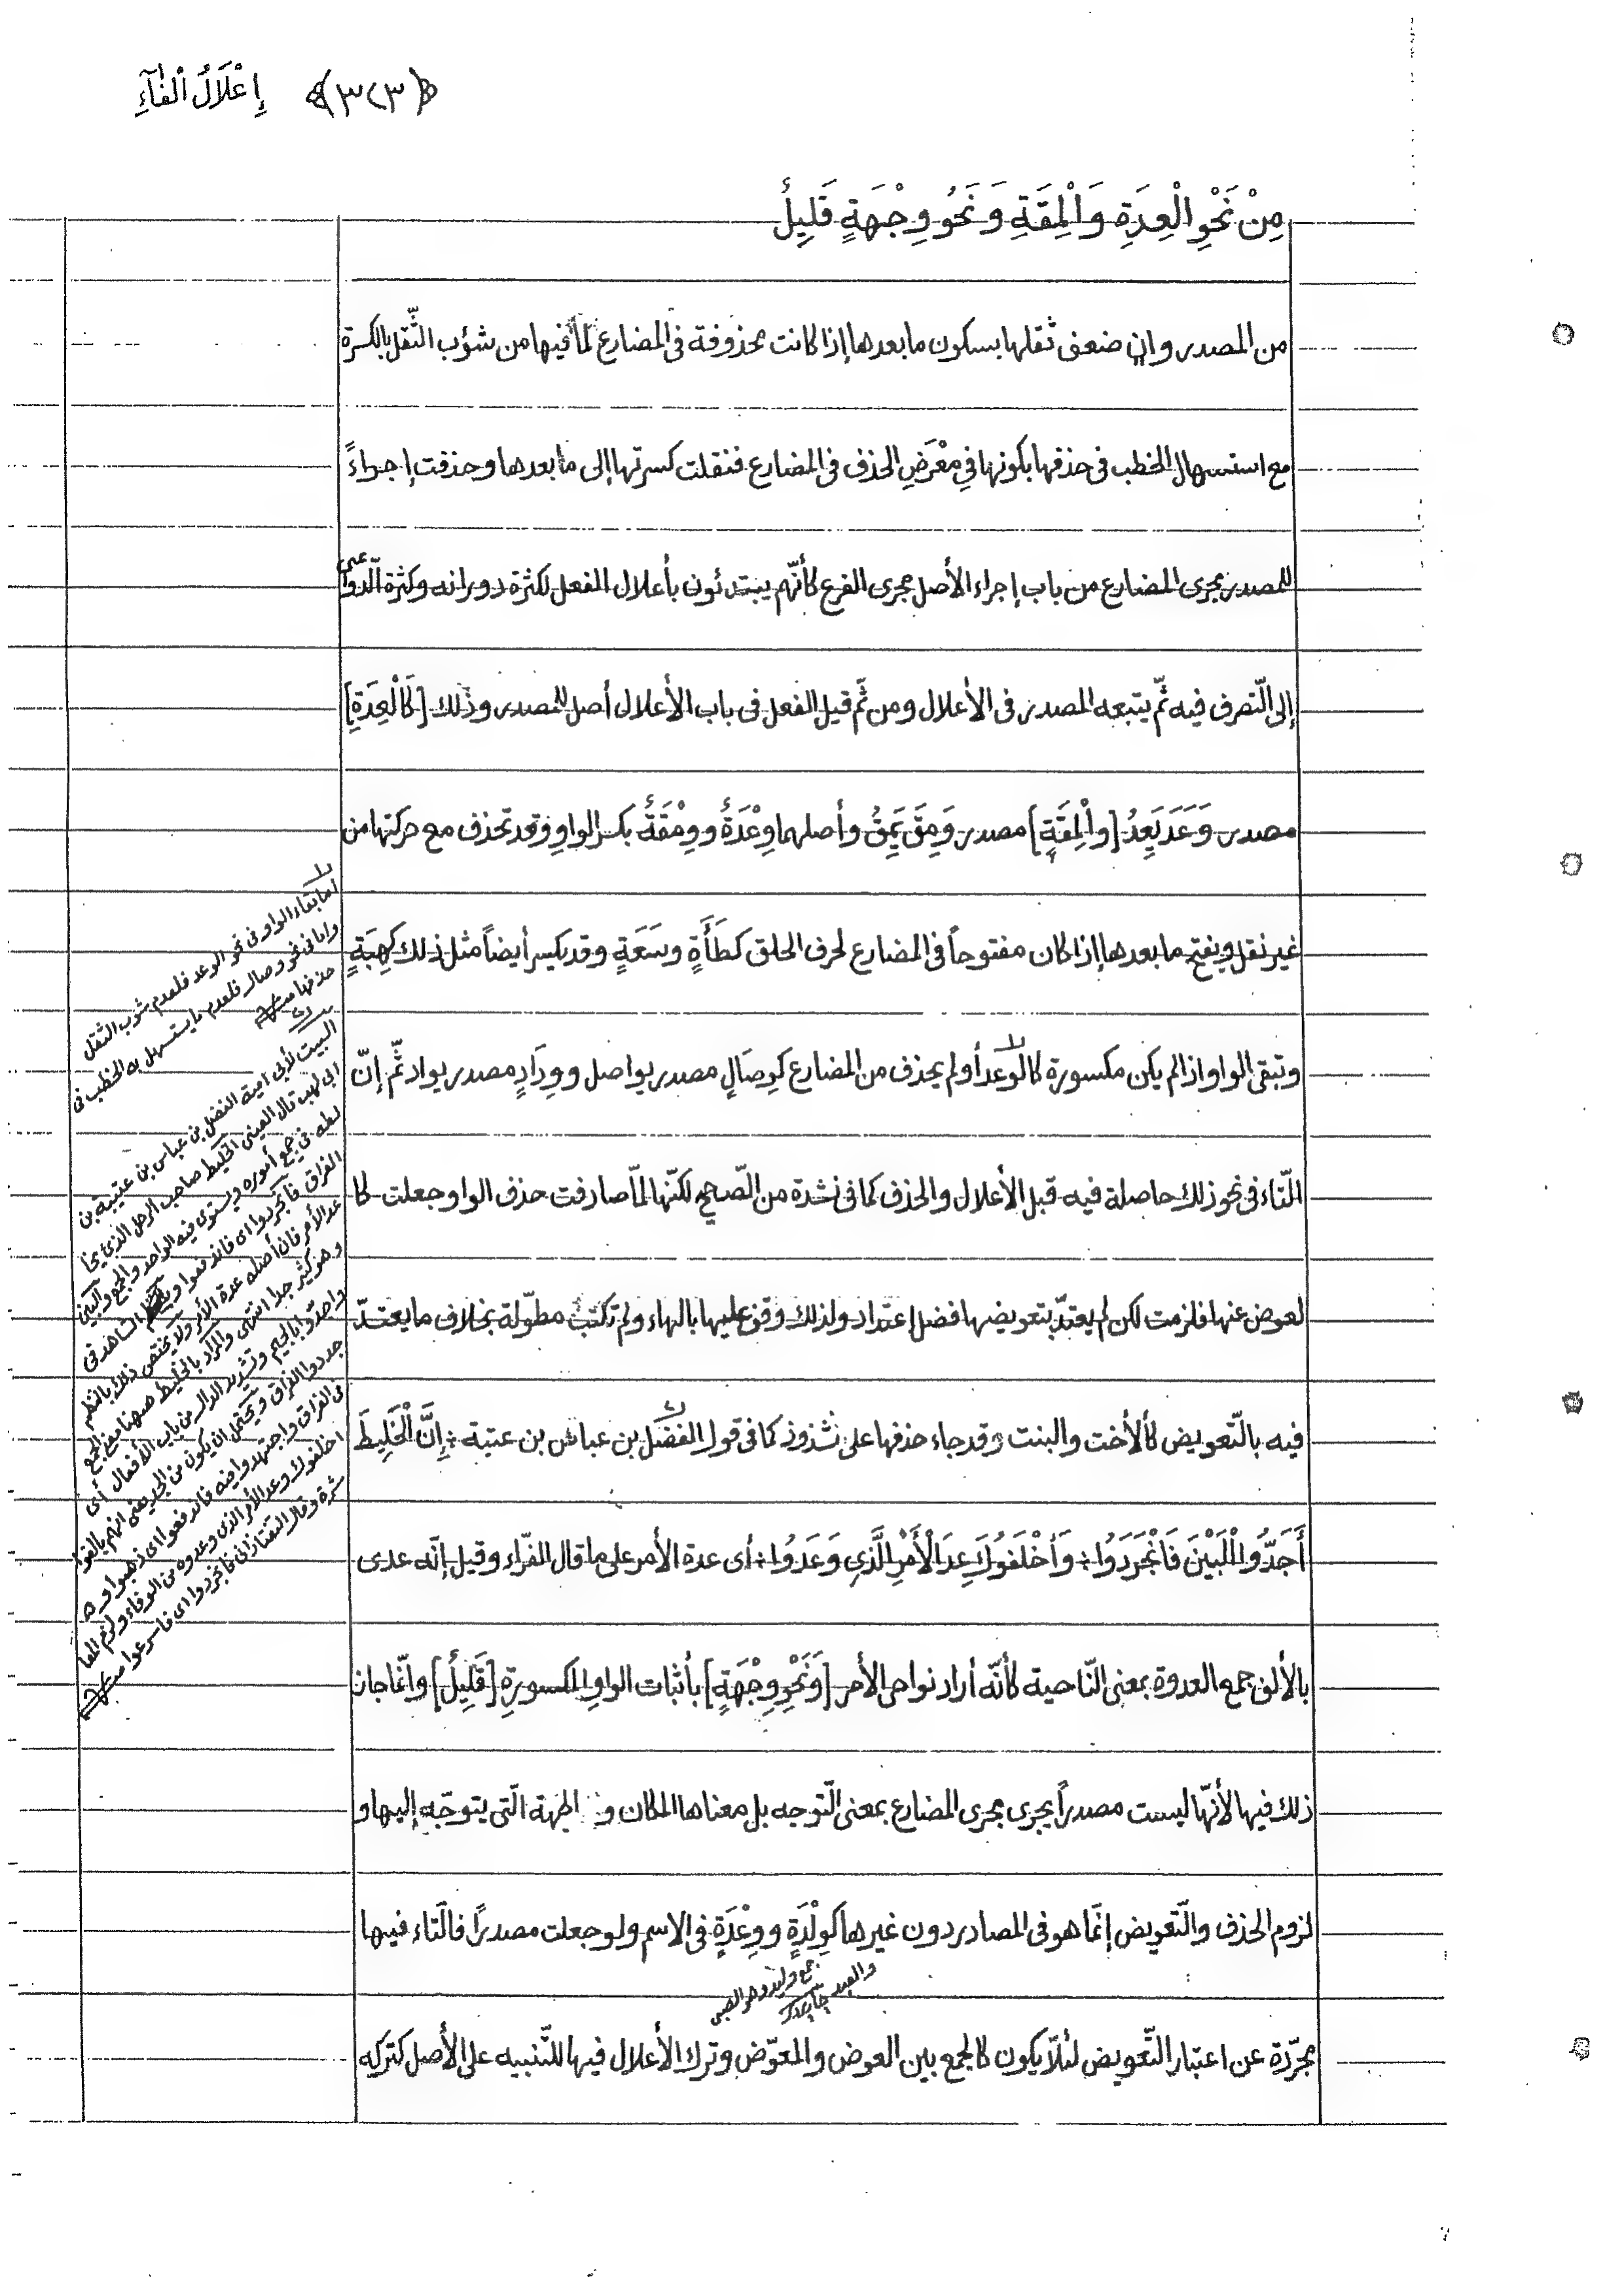 ﴿٣٢٣﴾ إِعْلَالُ الْفَآءِ
مِنْ نَحْوِ الْعِدَةِ وَالْمِقَةِ وَنَحْوُ وِجْهَةٍ قَلِيلٌ
من المصدر وان ضعف ثقلها بسكون ما بعدها إذا كانت محذوفة فى المضارع لما فيها من شؤب الثّقل بالكسرة
مع استسهال الخطب فى حذفها بكونها فِي مَعْرَضِ الحذف فى المضارع فنقلت كسرتها إلى ما بعدها وحذفت إجراءً
للمصدر مجرى المضارع من باب إجراء الأصل مجرى الفرع كأنّهم يبتدئون بأعلال الفعل لكثرة دورانه وكثرة الّدواعى
إلى الّتصرف فيه ثمّ يتبعه المصدر فى الأعلال ومن ثَّم قيل الفعل فى باب الأعلال أصل للمصدر وذلك [كَالْعِدَةِ]
مصدر وَعَدَ يَعِدُ [والْمِقَةِ] مصدر وَمِقَ يَمِقُ وأصلهما وِعْدَةٌ ووِمْقَةٌ بكسر الواو وقد تحذف مع حركتها من
غير نقل ويفتح ما بعدها إذا كان مفتوحاً فى المضارع لحرف الحلق كطَأَةٍ وسَعَةٍ وقد يكسر أيضاً مثل ذلك كهِبَةٍ
وتبقى الواو اذا لم يكن مكسورة كالوعد أو لم يحذف من المضارع كوِصَالٍ مصدر يواصل ووِدَادٍ مصدر يواد ثمّ إنّ
الّتاء فى نحو ذلك حاصلة فيه قبل الأعلال والحذف كما فى نشدة من الصّحيح لكنّها لمّا صادفت حذف الواو جعلت كا
لعوض عنها فلزمت لكن لم يعتدّ بتعويضها فضل اعتداد ولذلك وقف عليها بالهاء ولم تكتب مطوّلة بخلاف ما يعتدّ
فيه بالتّعويض كالأخت والبنت وقد جاء حذفها على شذوذ كما فى قول الفضل بن عباس بن عتبة ؛ إِنَّ الْخَلِيطَ
أَجَدُّوا الْبَيْنَ فَانْجَرَدُوا ؛ وَأَخْلَفُوكَ عِدَ الْأَمْرِ الَّذِي وَعَدُوا ؛ أى عدة الأمر على ما قال الفرّاء وقيل إنّه عدى
بالألف جمع العدوة بمعنى النّاحية كأنّه أراد نواحى الأمر [وَنَحْوُ وِجْهَةٍ] بأثبات الواو المكسورة [قَلِيلٌ] وانّما جاز
ذلك فيها لأنّها ليست مصدراً يجرى مجرى المضارع بمعنى الّتوجه بل معناها المكان و الجهة الّتى يتوجّه إليها و
لزوم الحذف والّتعويض إنّما هو فى المصادر دون غيرها كوِلْدَةٍ ووِعْدَةٍ فى الاسم ولو جعلت مصدرًا فالتاء فيها
جمع وليد وهو الصبى
والعبد
مجرّدة عن اعتبار الّتعويض لئلّا يكون كالجمع بين العوض والمعوّض وترك الأعلال فيها للتّنبيه على الأصل كتركه
اما بقاء الواو فى نحو الوعد فلعدم شوب الثقل
واما فى نحو وصال فلعدم ما يستسهل به الخطب فى
حذفها منه
البيت لأبى امية الفضل بن عباس بن عتيبة بن
ابى لهب قال العينى الخليط صاحب الرجل الذى يخا
لطه فى جميع أموره ويستوى فيه الواحد والجمع والبين
الفراق فانجردوا اى فاندفعوا الشاهد فى
عد الأمر فان أصله عدة الأمر ولا يختص ذلك بالنظم
وهو كثير جدا انتهى والمراد بالخليط ههنا معنى الجمع
واجدّوا بالجيم وتشديد الدال من باب الأفعال أى
جددوا الفراق ويحتمل ان يكون من الجد يعنى انهم بالغوا
فى الفراق واجتهدوا فيه فاندفعوا اى ذهبوا و
اخلفوك وعد الأمر الذى وعدوه من الوفاء ولزم المعا
شرة وقال التفتازانى فانجردوا اى فاسرعوا منه